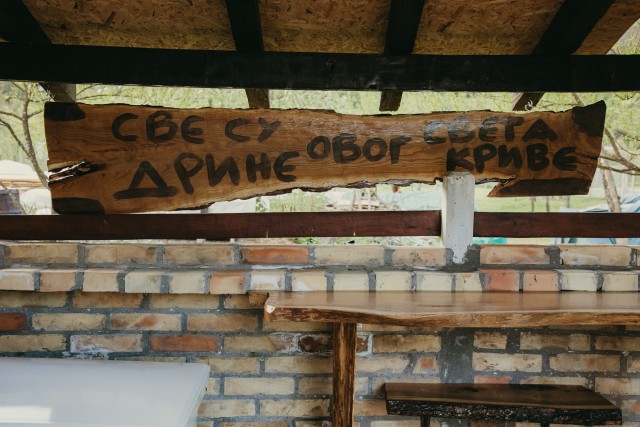 СВЕ СУ
ДРИНЕ
ОВОГ
СВЕТА
КРИВЕ